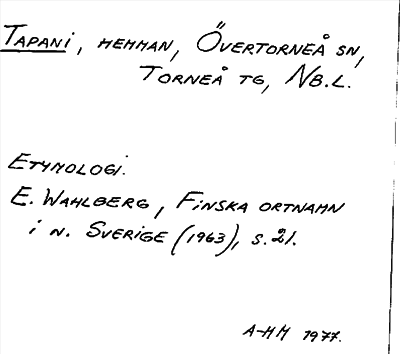 TAPANI, HEMMAN, ÖVERTORNEÅ SN,
TORNEÅ TG, NB.L.
ETYMOLOGI.
E. WAHLBERG, FINSKA ORTNAMN
I N. SVERIGE (1963), S. 21.
A-HM 1977.